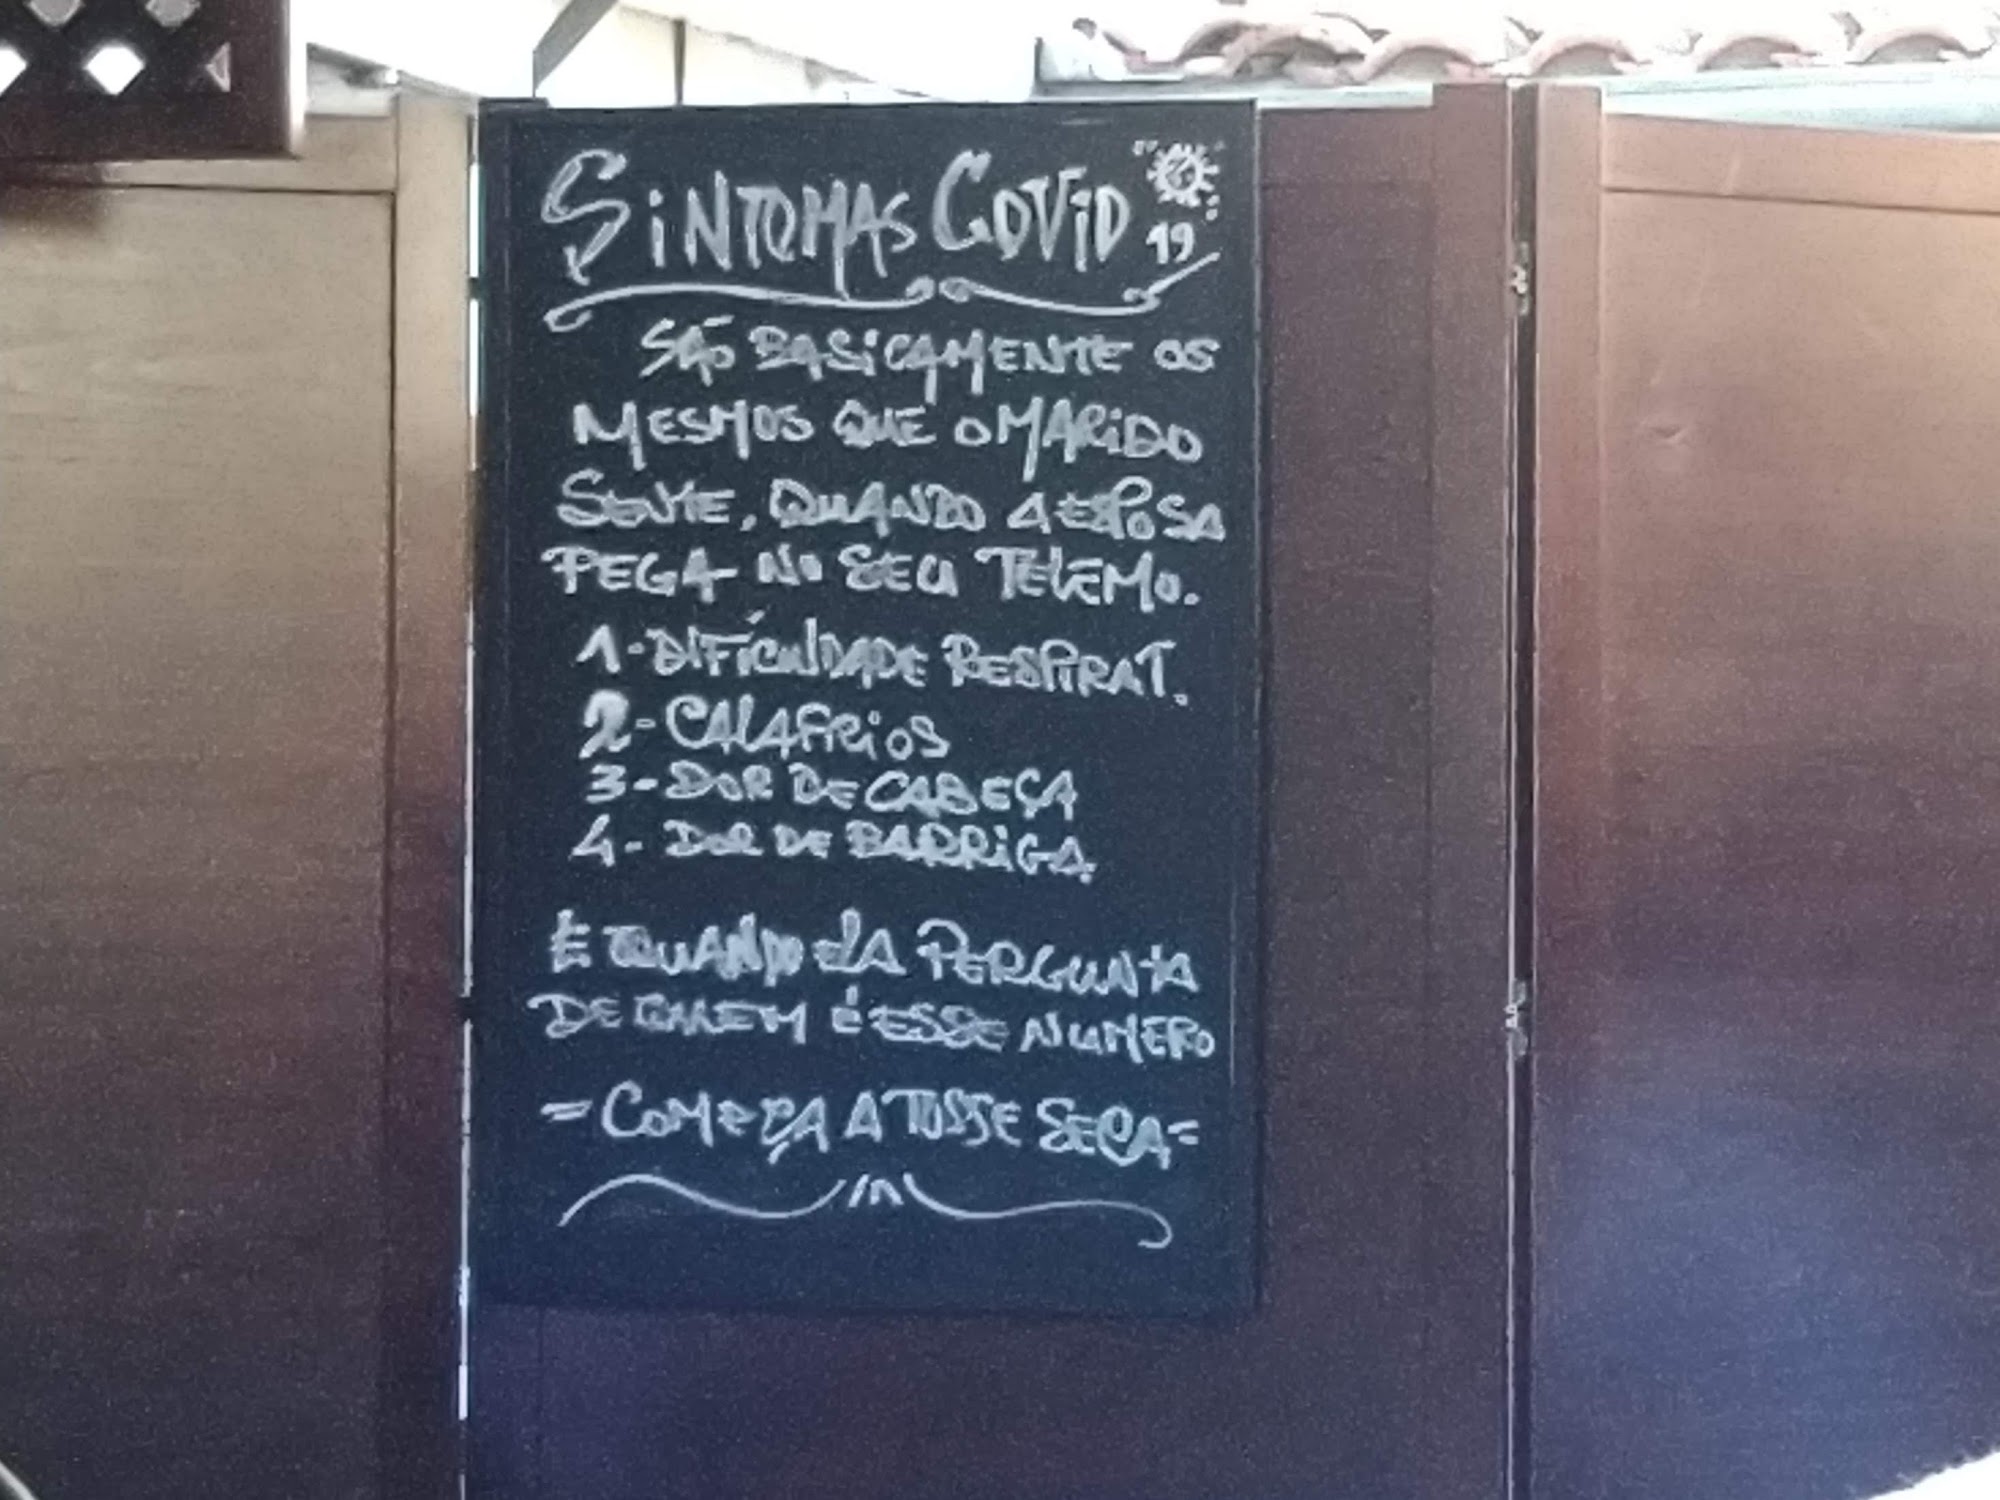 SINTOMAS COVID 19
SÃO BASICAMENTE OS
MESMOS QUE O MARIDO
SENTE, QUANDO A ESPOSA
PEGA NO SEU TELEMO.
1-DIFÍCULDADE RESPIRAT.
2-CALAFRIOS
3-DOR DE CABEÇA
4-DOR DE BARRIGA.
E QUANDO ELA PERGUNTA
DE QUEM É ESSE NUMERO
=COMEÇA A TOSSE SECA=